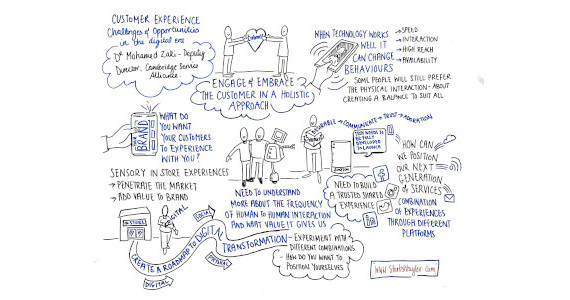 CUSTOMER EXPERIENCE
Challenges & Opportunities
in the digital era
Dr Mohamed Zaki - Deputy
Director, Cambridge Service
Alliance.
ENGAGE & EMBRACE
THE CUSTOMER IN A HOLISTIC
APPROACH
WHEN TECHNOLOGY WORKS
WELL IT
CAN CHANGE
BEHAVIOURS
→ SPEED
→ INTERACTION
→ HIGH REACH
→ AVAILABILITY
SOME PEOPLE WILL STILL PREFER
THE PHYSICAL INTERACTION - ABOUT
CREATING A BALANCE TO SUIT ALL
BRAND
WHAT DO
YOU WANT
YOUR CUSTOMERS
TO EXPERIENCE
WITH YOU?
SENSORY IN STORE EXPERIENCES
→ PENETRATE THE MARKET
→ ADD VALUE TO BRAND
NEED TO UNDERSTAND
MORE ABOUT THE FREQUENCY
OF HUMAN TO HUMAN INTERACTION
AND WHAT VALUE IT GIVES US
→ COMMUNICATE → TRUST →
NEED TO BUILD
A TRUSTED SHARED
EXPERIENCE
HOW CAN
WE POSITION
OUR NEXT
GENERATION
of SERVICES
COMBINATION
OF EXPERIENCES
THROUGH DIFFERENT
PLATFORMS
STORE
DIGITAL
SOCIAL
PHYSICAL
CREATE A ROADMAP TO DIGITAL
TRANSFORMATION
- EXPERIMENT WITH
DIFFERENT COMBINATIONS
- HOW DO YOU WANT TO
POSITION YOURSELVES
DIGITAL